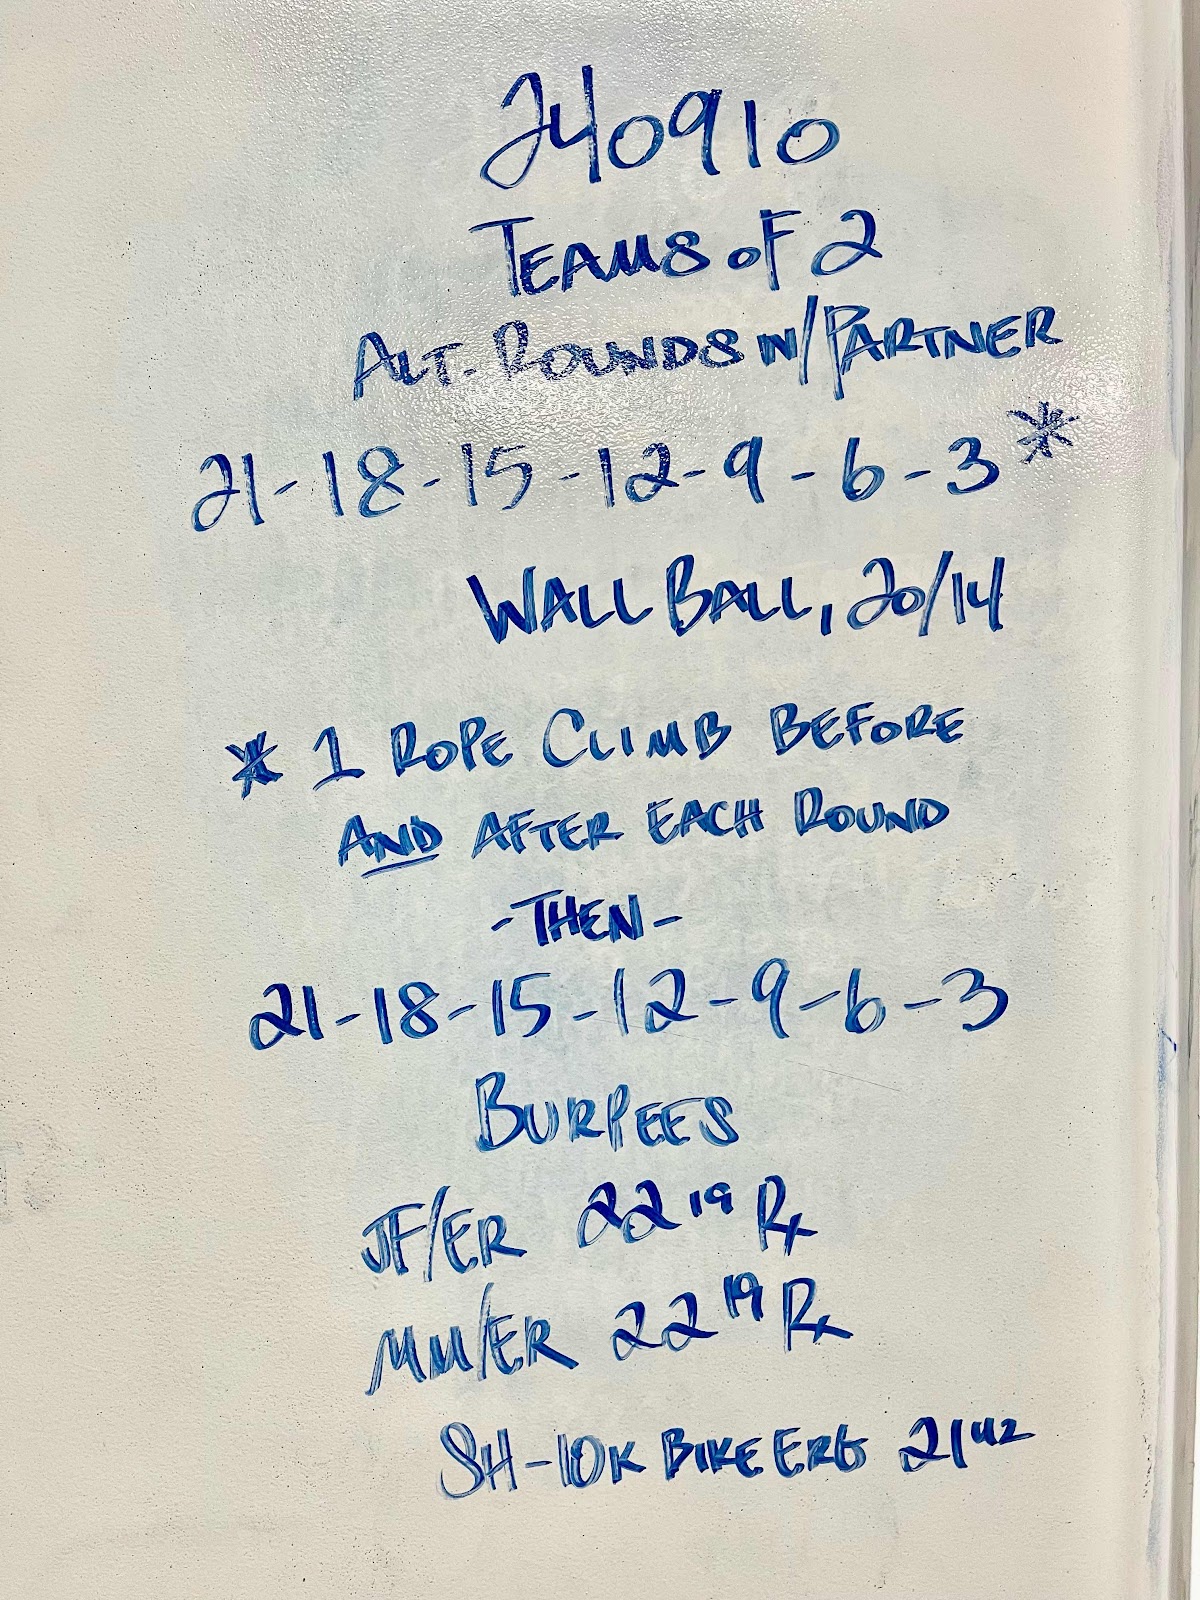 240910
TEAMS OF 2
ALT. ROUNDS W/PARTNER
21-18-15-12-9-6-3*
WALL BALL, 20/14
* 1 ROPE CLIMB BEFORE
AND AFTER EACH ROUND
-THEN-
21-18-15-12-9-6-3
BURPEES
JF/ER 22 19 Rx
MM/ER 22 19 Rx
SH-10K BIKE ERG 21 42